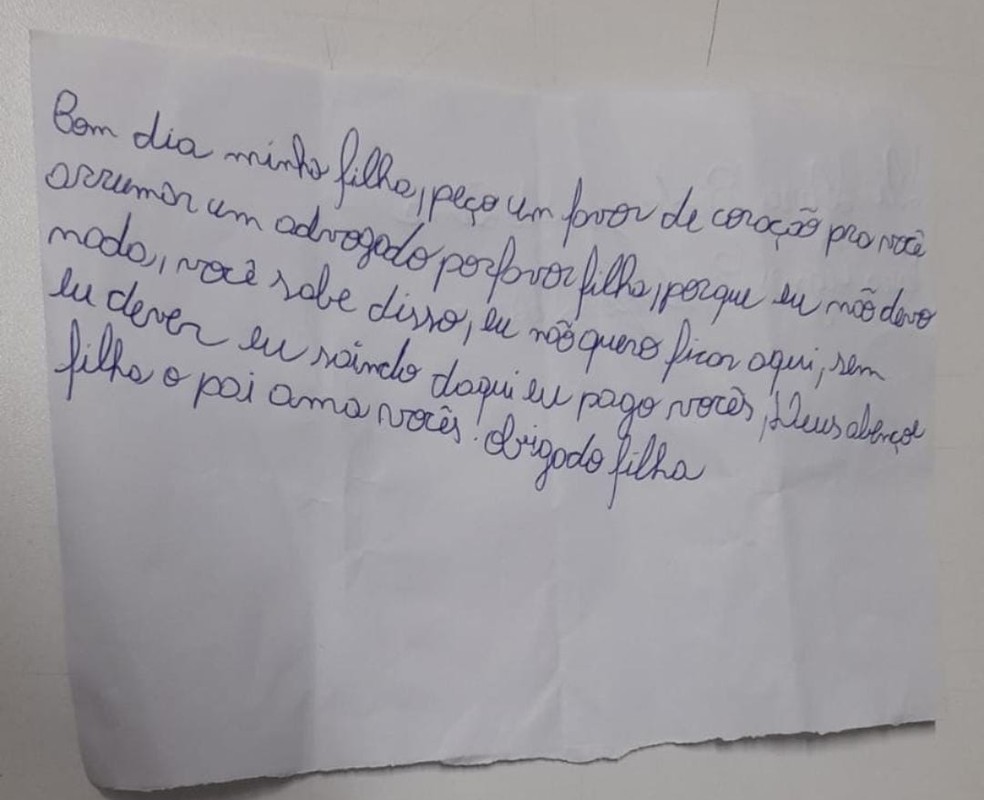 Bom dia minha filha, peço um favor de coração pra você
arrumar um advogado por favor filha, porque eu não devo
nada, você sabe disso, eu não quero ficar aqui, sem
eu dever eu saindo daqui eu pago vocês, Deus abençoe
filha o pai ama vocês! obrigado filha